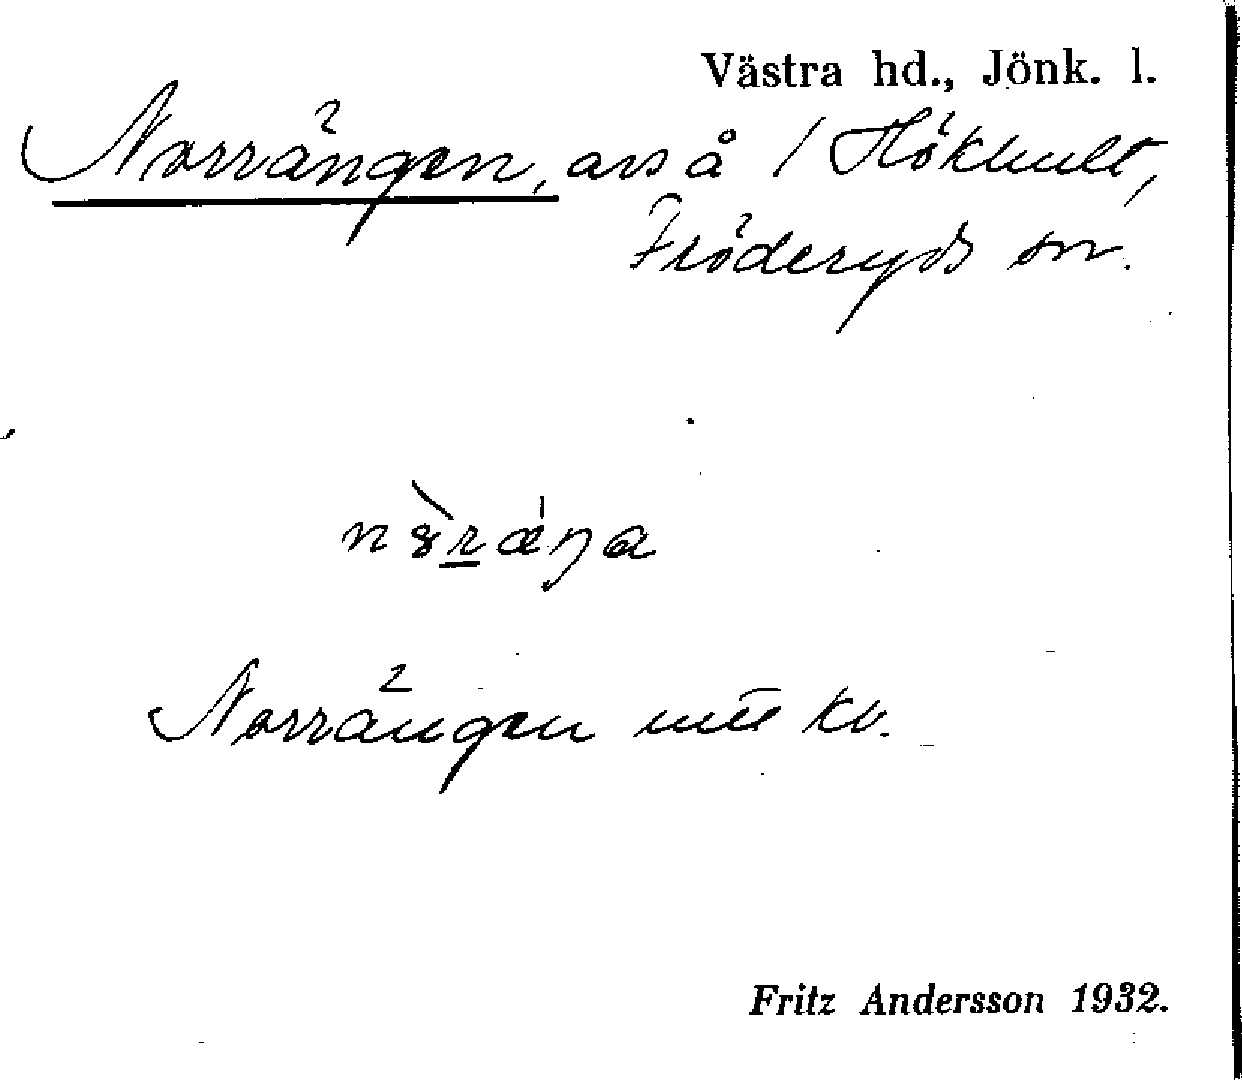 Västra hd., Jönk. l.
Norrängen, avs å / Hökhult,
Fröderyds sn.
Norrängen
kv.
Fritz Andersson 1932.